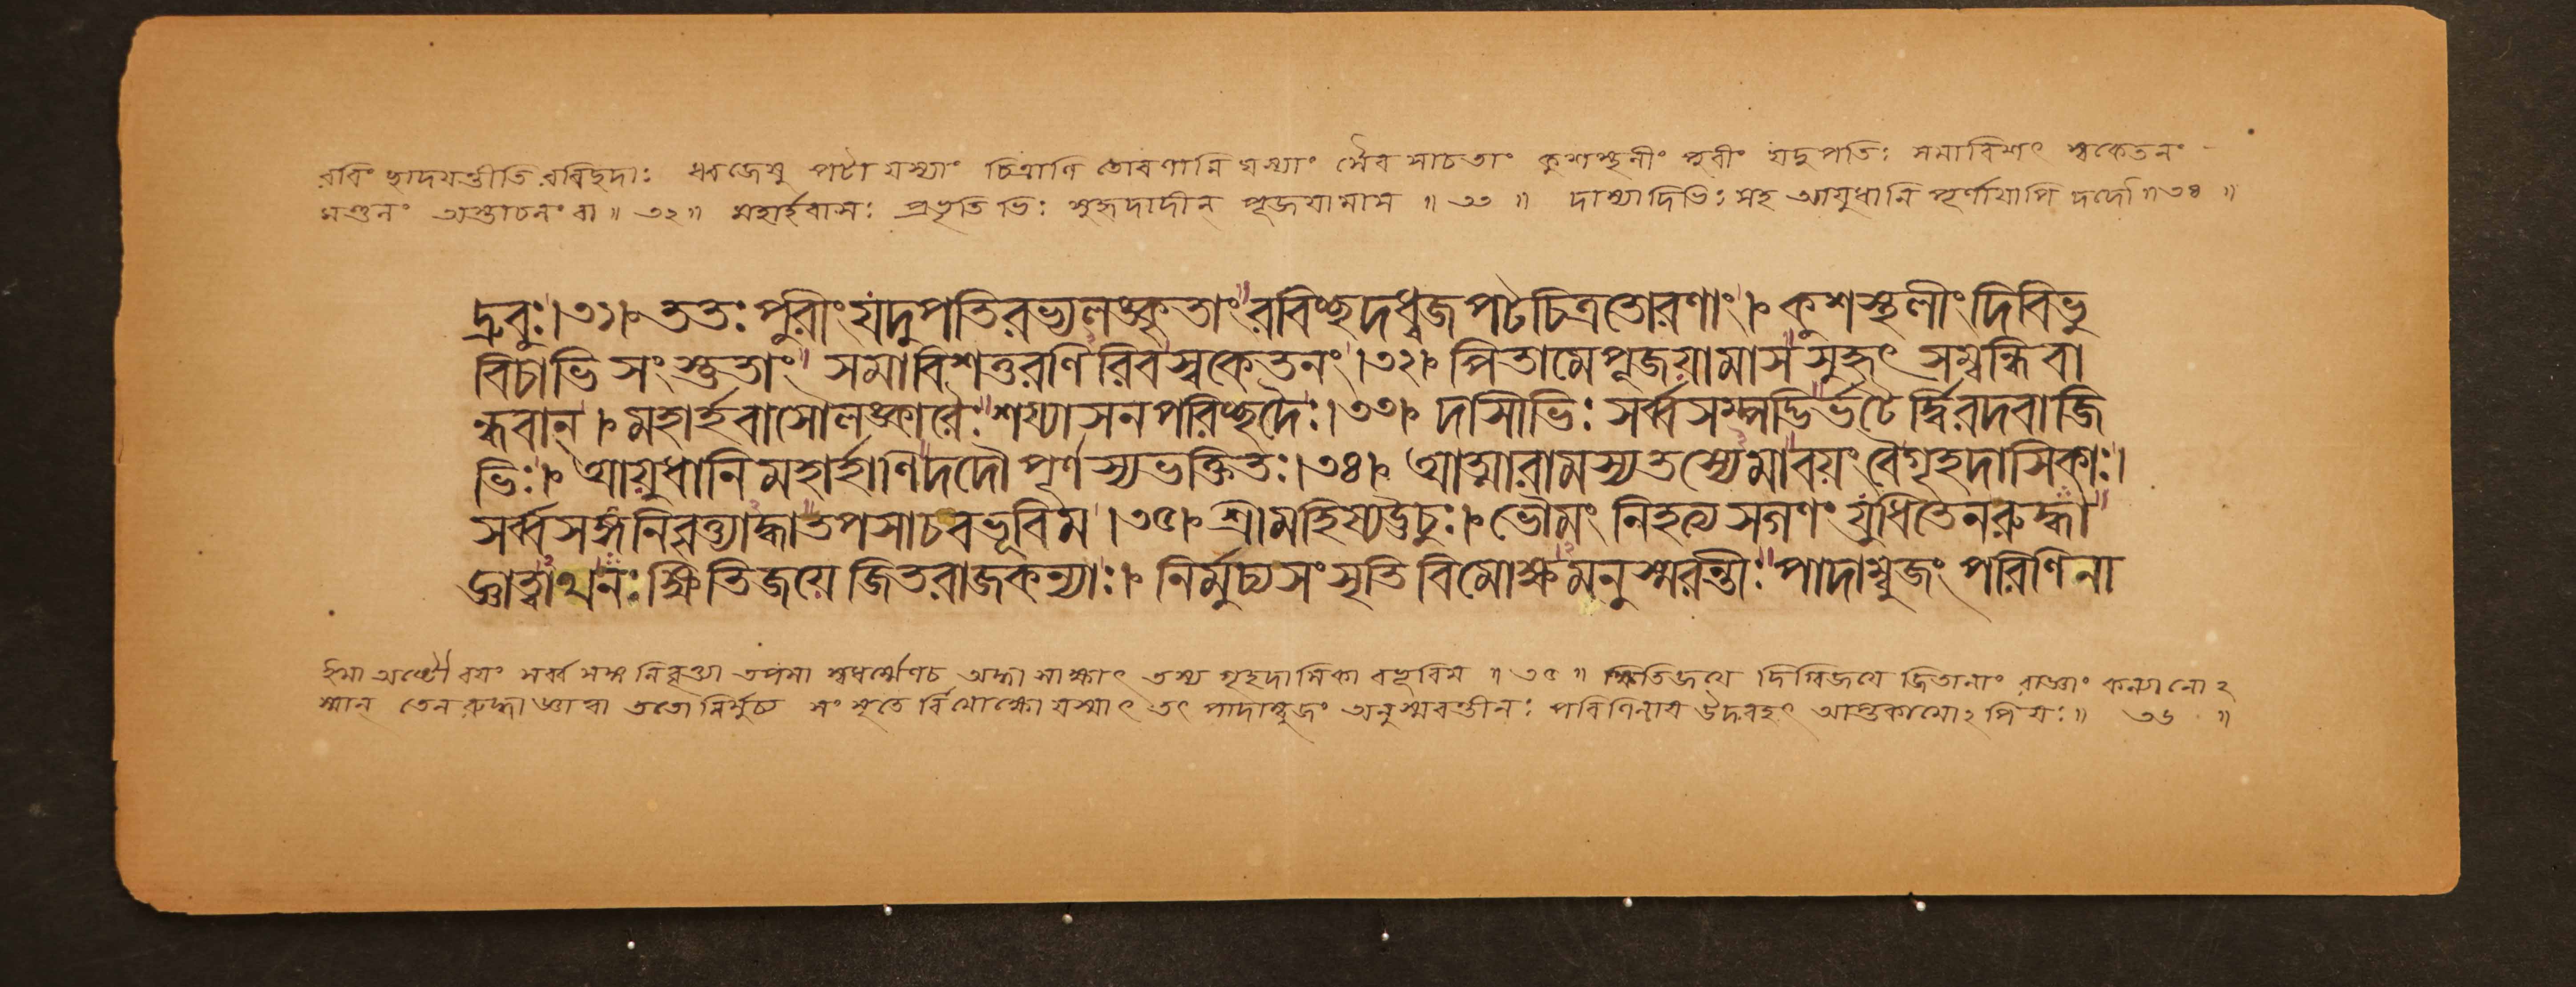 রবিং ছাদযন্তীতি রবিছদাঃ ধ্বজেষু পটা যস্যাং চিত্রাণি তোরণানি যস্যাং সৈব সাচতাং কুশস্থলীং পুরীং যদুপতিঃ সমাবিশৎ স্বকেতনং
মণ্ডনং অস্তাচলং বা॥ ৩২॥ মহার্হবাসঃ প্রভৃতি ভিঃ সুহৃদাদীন পূজযামাস ॥ ৩৩ ॥ দাস্যাদিভিঃ সহ আযুধানি পূর্ণাযাপি দদৌ॥৩৪॥
দ্রুবুঃ।৩১। ততঃ পুরীং যদুপতিরভ্যলঙ্কৃতাং রবিচ্ছদধ্বজপটচিত্রতোরণাং। কুশস্থলীং দিবিভু
বিচাভি সংস্তুতাং সমাবিশত্তরণি রিবস্বকেতনং।৩২। পিতামেপূজয়ামাস সুহৃৎ সম্বন্ধিবা
ন্ধবান্। মহার্হবাসোলঙ্কারৈঃ শয্যাসনপরিচ্ছদৈঃ।৩৩। দাসীভিঃ সর্ব্বসম্পদ্ভির্ভটৈ র্দ্বিরদবাজি
ভিঃ। আয়ুধানি মহার্হাণি দদৌ পূর্ণস্যভক্তিতঃ।৩৪। আত্মারামস্যতস্যেমাবয়ং বৈগৃহদাসিকাঃ।
সর্ব্বসঙ্গনিবৃত্যাদ্ধাতপসাচবভূবিম।৩৫। শ্রীমহিষ্যউচুঃ। ভৌমং নিহত্য সগণং যুধিতেনরুদ্ধা
জ্ঞাত্বাথনঃ ক্ষিতিজয়ে জিতরাজকন্যাঃ। নির্মুচ্য সংসৃতি বিমোক্ষমনুস্মরন্তীঃ পাদাম্বুজং পরিণিনা
ইমা অষ্টৌ বযং সর্ব্ব সঙ্গ নিবৃত্ত্যা তপসা স্বধর্ম্মেণচ অদ্ধা সাক্ষাৎ তস্য গৃহদাসিকা বভূবিম ॥ ৩৫ ॥ ক্ষিতিজযে দিগ্বিজযে জিতানাং রাজ্ঞাং কন্যা নোঽ
স্মান্ তেন রুদ্ধা জ্ঞাত্বা ততো নির্মুচ্য সংসৃতে র্বিমোক্ষো যস্মাৎ তৎ পাদাম্বুজং অনুস্মরন্তীনঃ পরিণিনায উদবহৎ আপ্তকামোঽপি যঃ॥ ৩৬ ॥